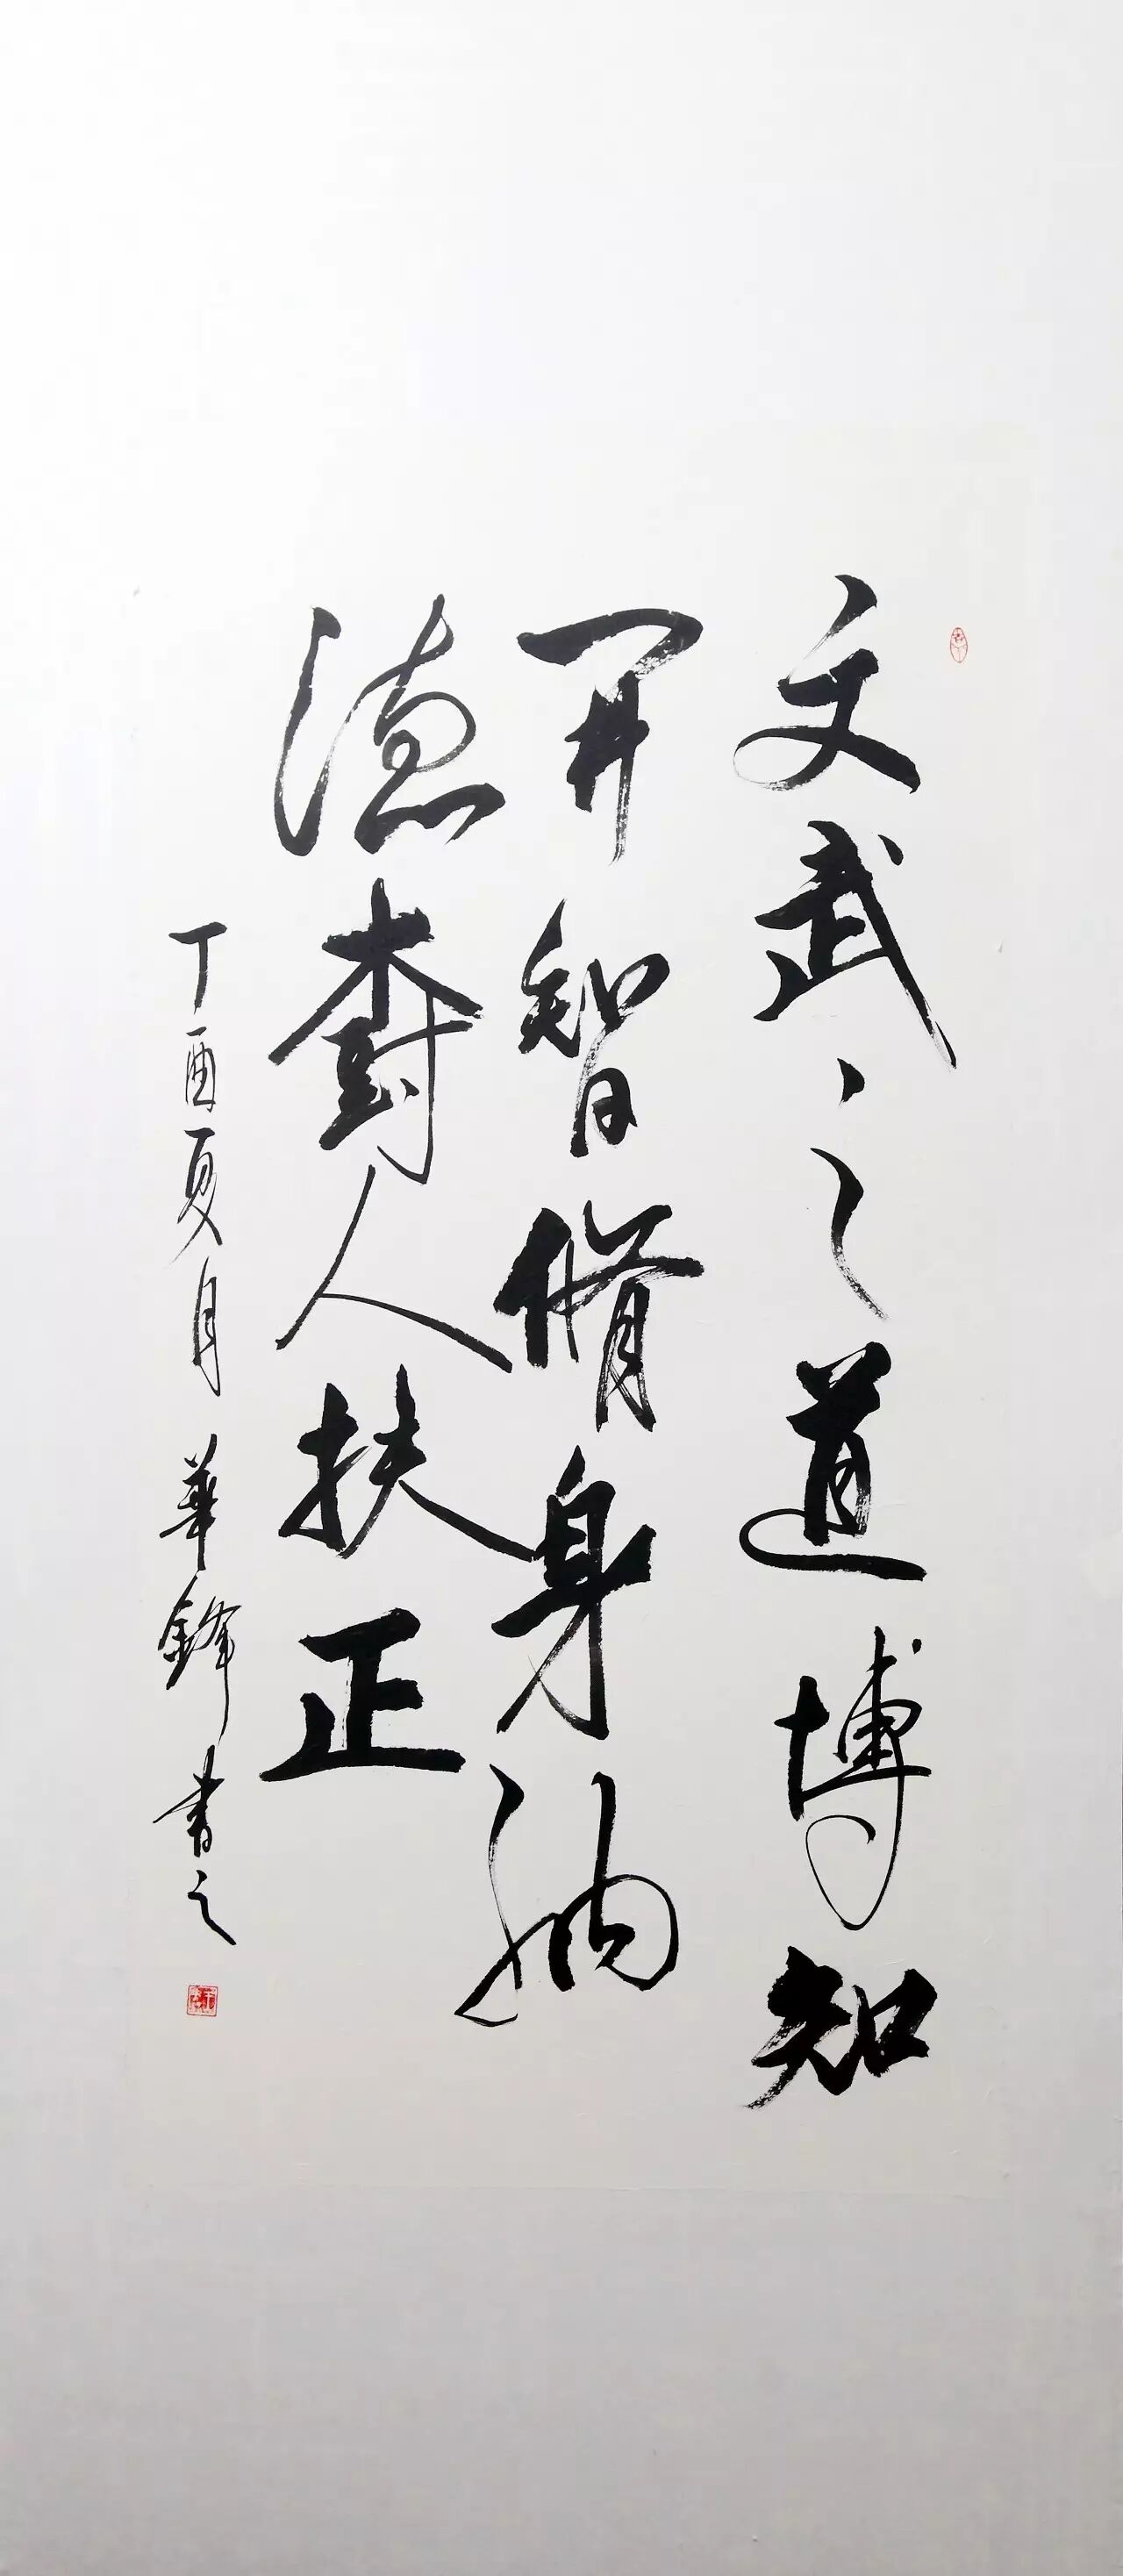 文武之道博知
開智脩身納
德樹人扶正
丁酉夏月華鋒書之